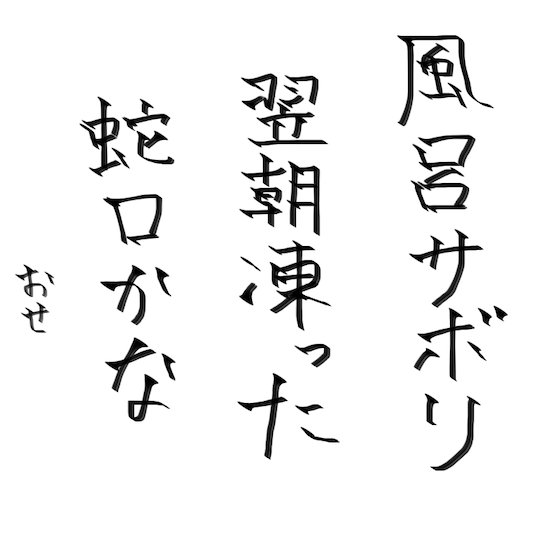 風呂サボリ
翌朝凍った
蛇口かな
おせ